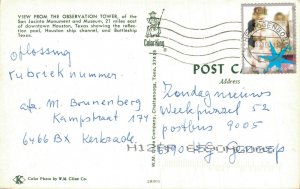 VIEW FROM THE OBSERVATION TOWER, of the
San Jacinto Monument and Museum, 21 miles east
of downtown Houston, Texas showing the reflec-
tion pool, Houston ship channel, and Battleship
Texas.
oplossing
rubriek nummer.
afz. M. Brunenberg
Kampstraat 174
6466 BX Kerkrade
Color King
POST CA
Address
Zondagnieuws
Weekpuzzel 52
postbus 9005
K
Color Photo by W.M. Cline Co.